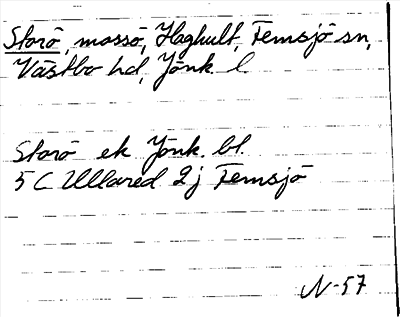 Storö, mossö, Haghult, Femsjö sn,
Västbo hd, Jönk. l.
Storö ek Jönk. bl.
5 C Ullared 2 j Femsjö
N-57